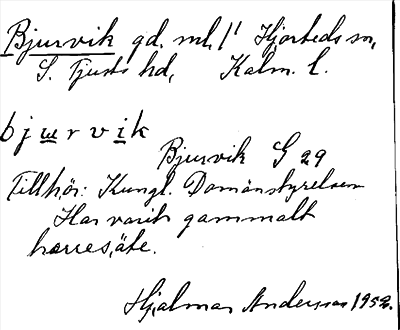 Bjurvik gd. ml. 1¹ Hjorteds sn,
S. Tjusts hd, Kalm. l.
bjɯrvik
Bjurvik G 29
Tillhör: Kungl. Domänstyrelsen
Har varit gammalt
herresäte.
Hjalmar Andersson 1952.